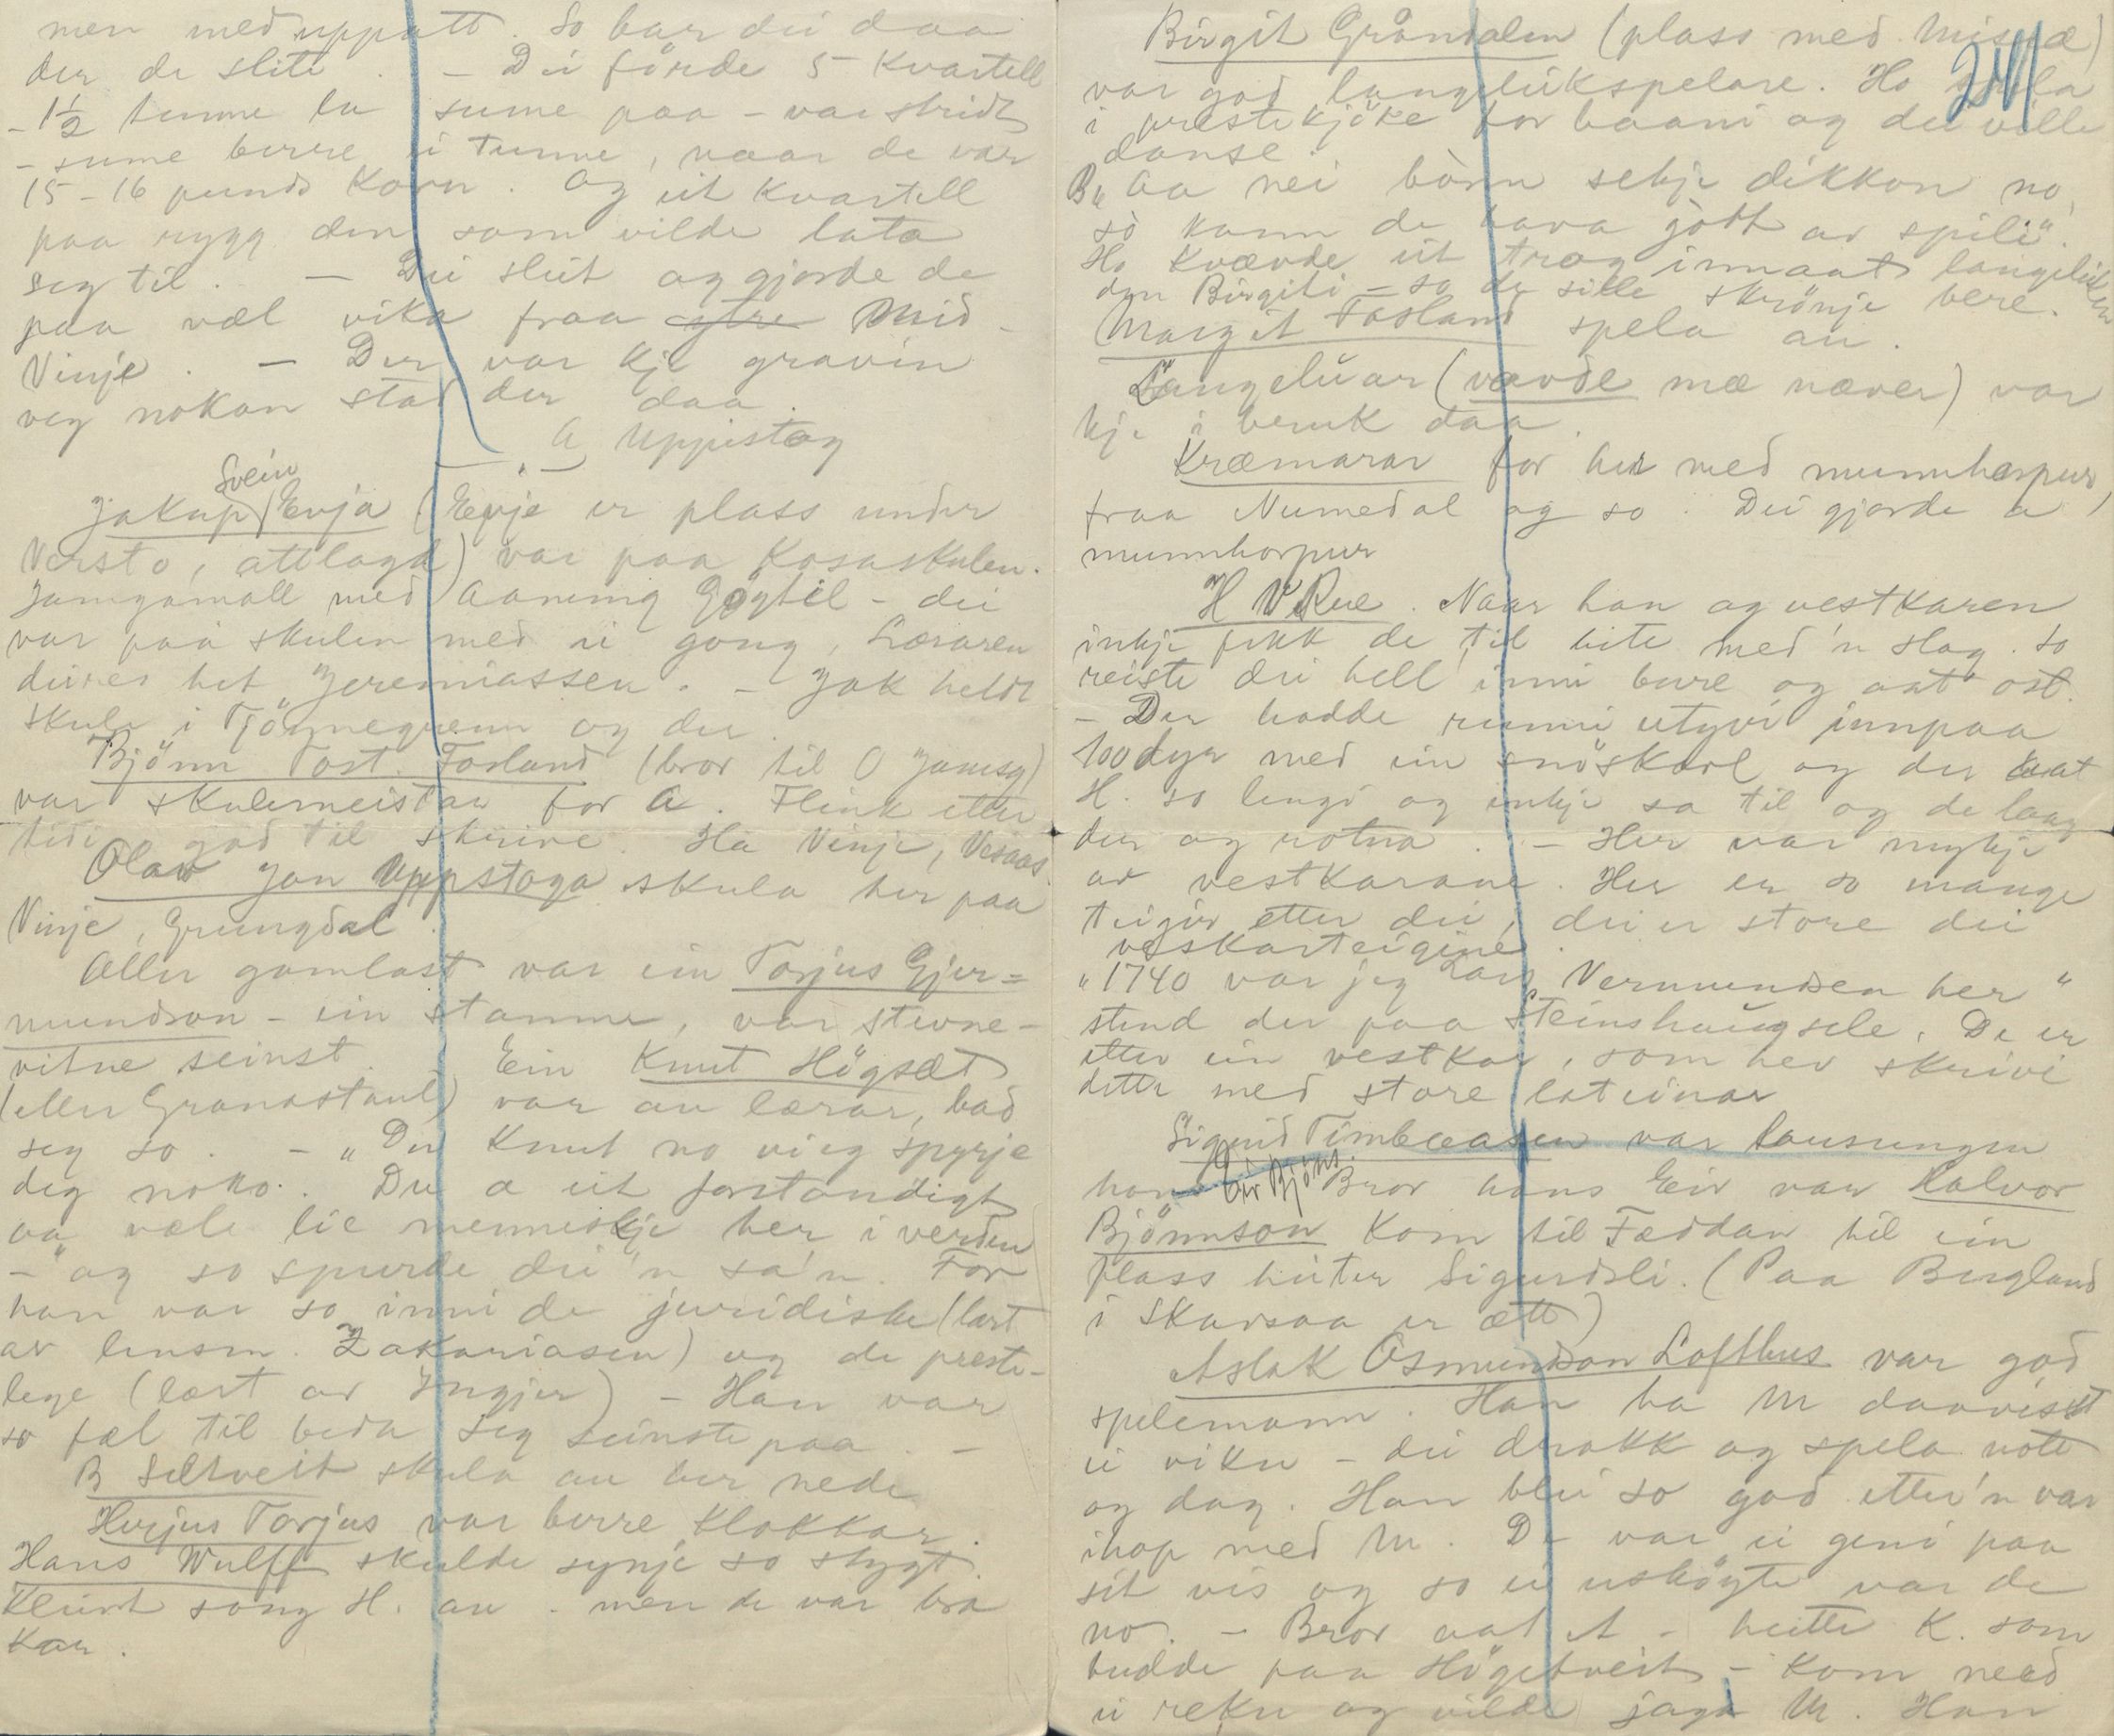 men med uppatt. So bar dei daa
der de sleit. - Dei förde 5 Kvartell
- 1½ tunne la sume paa - var stridt
- sume berre ei tunne, naar de var
15-16 punds Korn. Og eit Kvartell
paa rygg den som vilde lata
seg til. - Dei sleit og gjorde de
paa væl vika fraa Mid-
Vinje. - Der var kje gravin
veg nokon stad der daa.
A Uppistog
Svein
Jakup Evja (Evje er plass under
Versto, attlagd) var paa Kosaskulen.
Jamgamall med Aanung Göytil - dei
var paa skulen med ei gong, Læraren
deires het Jeremiassen. - Jak heldt
skule i Tjönnegrenn og der.
Björn Tost. Fosland (bror til O Jamsg)
var skulemeistar for A. Flink etter
tidi god til skrive. Ha Vinje, Vesaas.
Olav Jon Uppstoga skula her paa
Vinje, Grungdal.
Aller gamlast var ein Torjus Gjer=
mundson - ein stamme, var stevne-
vitne seinst. Ein Knut Högsæt
(eller Granastaul) var au lærar, bad
seg so. - "Du Knut no vi eg spyrje
deg noko. Du a eit forstandigt
og væle lie menneskje her i verden
-" og so spurde dei'n sa'n. For
han var so inni de juridiske (lært
av lensm. Zakariasen) og de preste-
lege (lært av Ingjer) - Han var
so fæl til beda seg seinste paa. -
B Seltveit skula au her nede
Herjus Torjus var berre Klokkar.
Hans Wulff skulde synje so stygt.
Kleint song H. au - men de var bra
Kar.
241
Birgit Gröndalen (plass med Misund)
var god langleikspelare. Ho spela
i prestekjöke for baani og dei ville
danse.
B. Aa nei bòrn sekje dikkon no,
so kann de hava gott av spili".
Ho kvævde eit trog innaat langeleiken
den Birgiti - so de sille skrönje bere.
Margit Fosland spela au.
Langelùar (vavde mæ næver) var
kje i bruk daa.
Kræmarar for her med munnharpur
fraa Numedal og so. Dei gjorde a
munnharpur
H V Rue. Naar han og vestkaren
inkje fekk de til bite med'n slag. so
reiste dei hell inni bure og aat ost.
- Der hadde runni utyvi innpaa
100 dyr med ein snöskavl og der aat
H. so lengi og inkje sa til og de laag
der og rotna. - Her var mykje
av vestkarane. Her er so mange
teigir etter dei, dei er store dei
veskarteigine.
"1740 var jeg Lars Vermundsen her"
stend der paa Steinshaugsele. De er
etter ein vestkar, som hev skrivi
dette med store lateinar
Sigurd Timbeaasen var lausungen
hans Eiv Björns. Bror hans Eiv var Halvor
Björnson kom til Fæddan til ein
plass heiter Sigurdsli. (Paa Bergland
i Skarsaa er ætt)
Aslak Osmundson Lofthus var god
spelemann. Han ha M daavisst
ei viku - dei drakk og spela nott
og dag. Han blei so god etter'n var
ihop med M. De var ei geni paa
sit vis og so ei usköyte var de
no. - Bror aat A - heitte K. som
budde paa Högetveit - kom ned
ei reku og vilde jaga M. Han